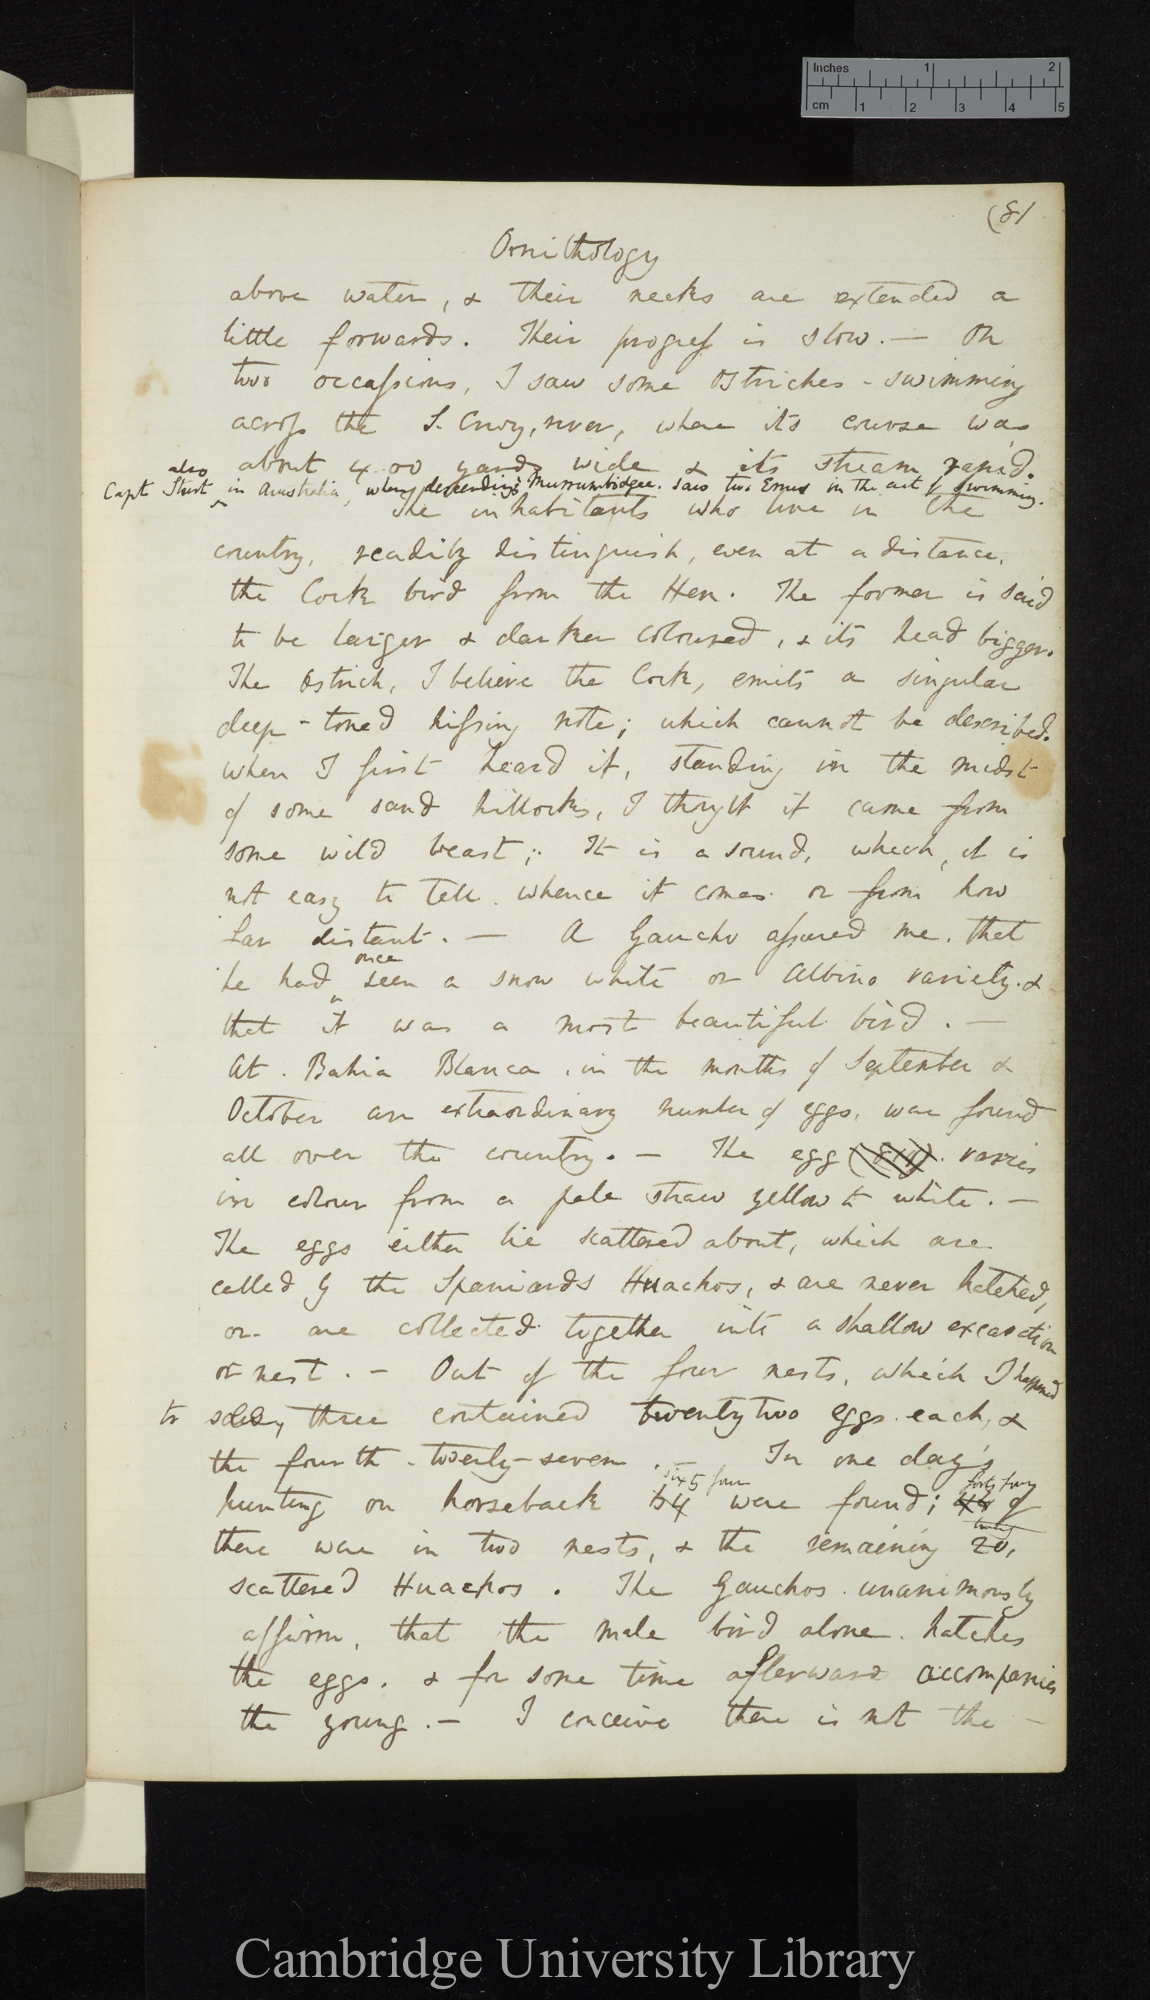 Inches 1 2
cm 1 2 3 4 5
(81
Ornithology
above water, & their necks are extended a
little forwards. Their progress is slow. — On
two occassions, I saw some Ostriches - swimming
across the S. Cruz, river, where its course was
about 400 yards wide & its stream rapid.
also
Capt Sturt in Australia, when descending Murrumbidgee. saw two Emus in the act of swimming.
The inhabitants who live in the
country, readily distinguish, even at a distance,
the Cock bird from the Hen. The former is said
to be larger & darker coloured, & its head bigger.
The Ostrich, I believe the Cock, emits a singular
deep-toned hissing note; which cannot be described.
when I first heard it, standing in the midst
of some sand hillocks, I thought it came from
some wild beast; It is a sound, which, it is
not easy to tell whence it comes or from how
far distant. — A Gaucho assured me, that
once
he had seen a snow white or Albino variety. &
that it was a most beautiful bird. —
At Bahia Blanca, in the months of September &
October an extraordinary number of eggs, was found
all over the country. — The egg varies
in colour from a pale straw yellow to white. —
The eggs either lie scattered about, which are
called by the Spaniards Huachos, & are never hatched,
or are collected together into a shallow excavation
or nest. — Out of the four nests, which I happened
to see, three contained twenty two eggs each, &
the fourth twenty-seven. In one day's
sixty four forty four
hunting on horseback 64 were found; 44 of
twenty
these were in two nests, & the remaining 20,
scattered Huachos. The Gauchos unanimously
affirm, that the male bird alone hatches
the eggs, & for some time afterwards accompanies
the young. — I conceive there is not the —
Cambridge University Library